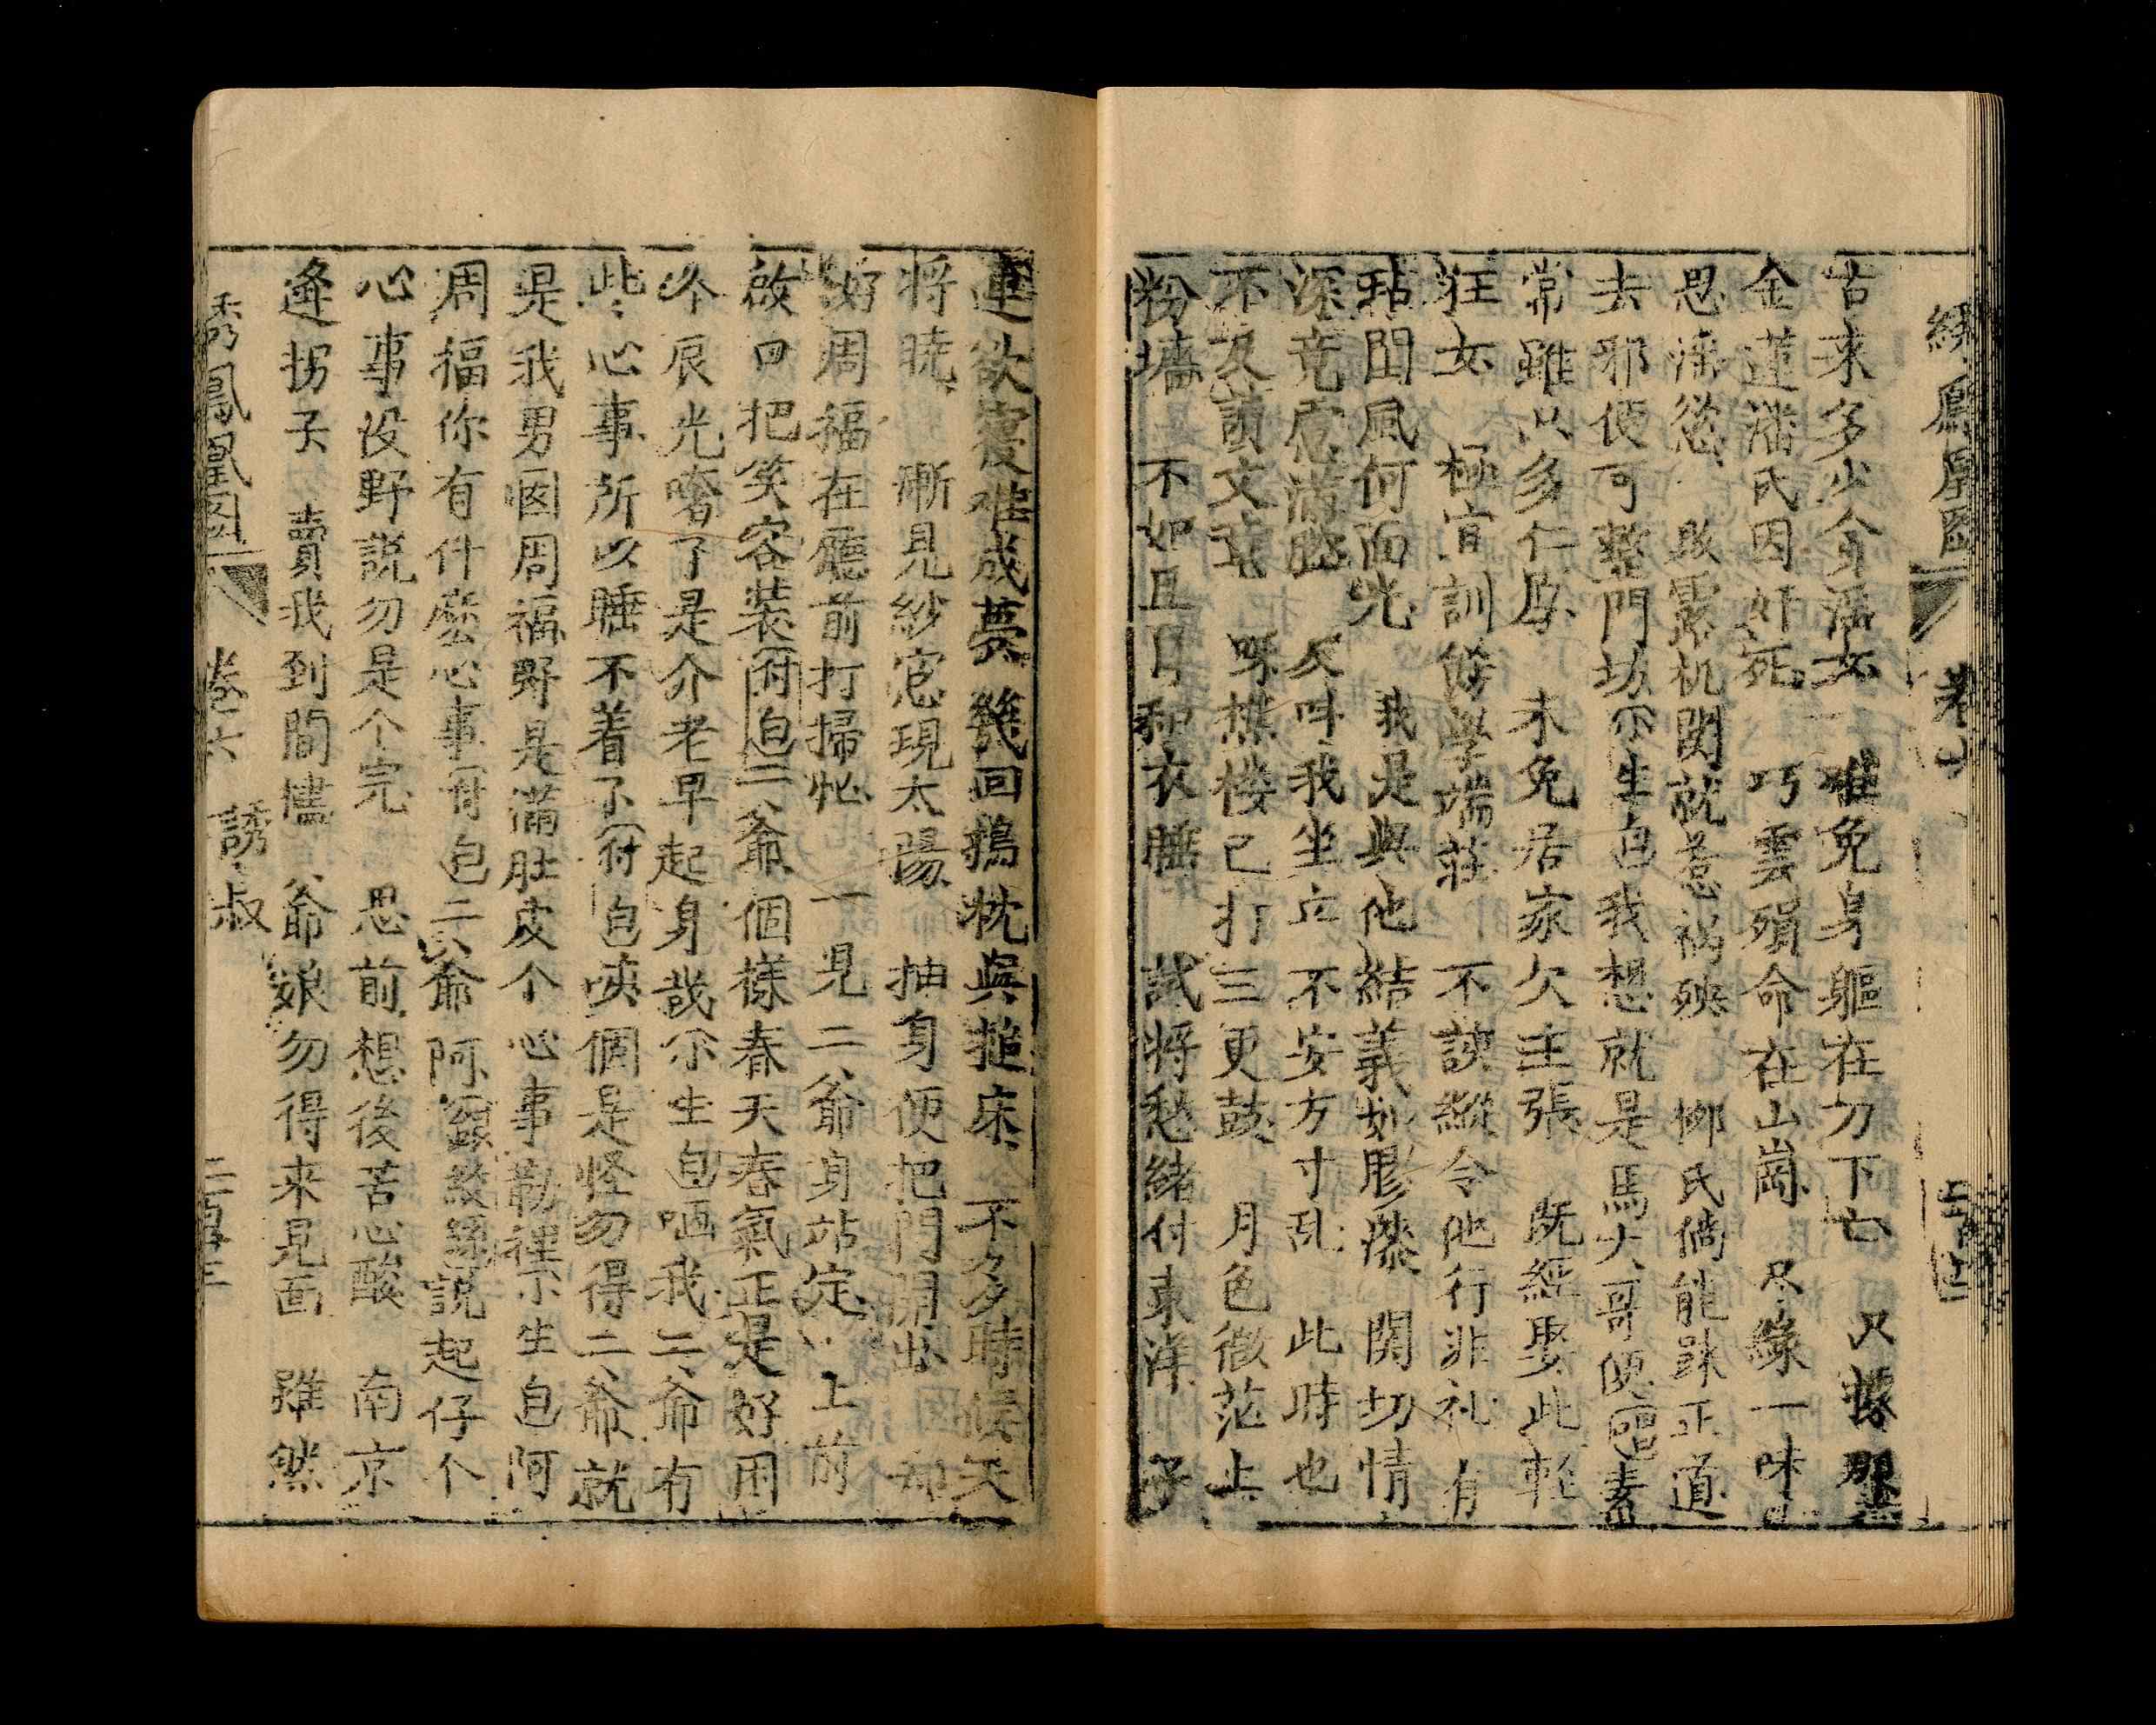 綉鳳凰圖 卷六
古来多少貪淫女 難免身軀在刀下亡 只據那
金蓮潘氏因奸死 巧雲殞命在山崗 只緣一味
思淫慾 敗露机関就惹禍殃 柳氏倘能跦正道
去邪便可整門坊 小生自我想就是馬大哥便 唱 素
常雖以多仁厚 未免居家欠主張 既經娶此輕
狂女 極宜訓飭学端莊 不該縱令他行非礼 有
玷閨風何面光 我是與他結義如膠漆 関切情
深竟惹满腔 反叫我坐立不安方寸乱 此時也
不及讀文章 呀樵楼已打三更鼓 月色微茫上
粉墻 不如且自和衣睡 試將愁緒付東洋 子
連欲寝难成夢 幾回鴉枕與搥床 不多時候天
将曉 漸見紗窓現太陽 抽身便把門開出 却
好周福在廳前打掃忙 一見二爺身站定 上前
啟口把笑容装 付白 二爺個樣春天春氣正是好困
个辰光嗜了是介老早起身哉小生白咂我二爺有
些心事所以睡不着了 付白 咦個是怪勿得二爺就
是我男囡周福野是满肚皮个心事勒裡小生白阿
周福你有什麽心事 付白 二爺阿 說起仔个
心事没野説勿是个完 思前想後苦心酸 南京
逢拐子 賣我到間壗 爺娘勿得来見面 雖然
綉鳳凰圖 卷六 誘叔